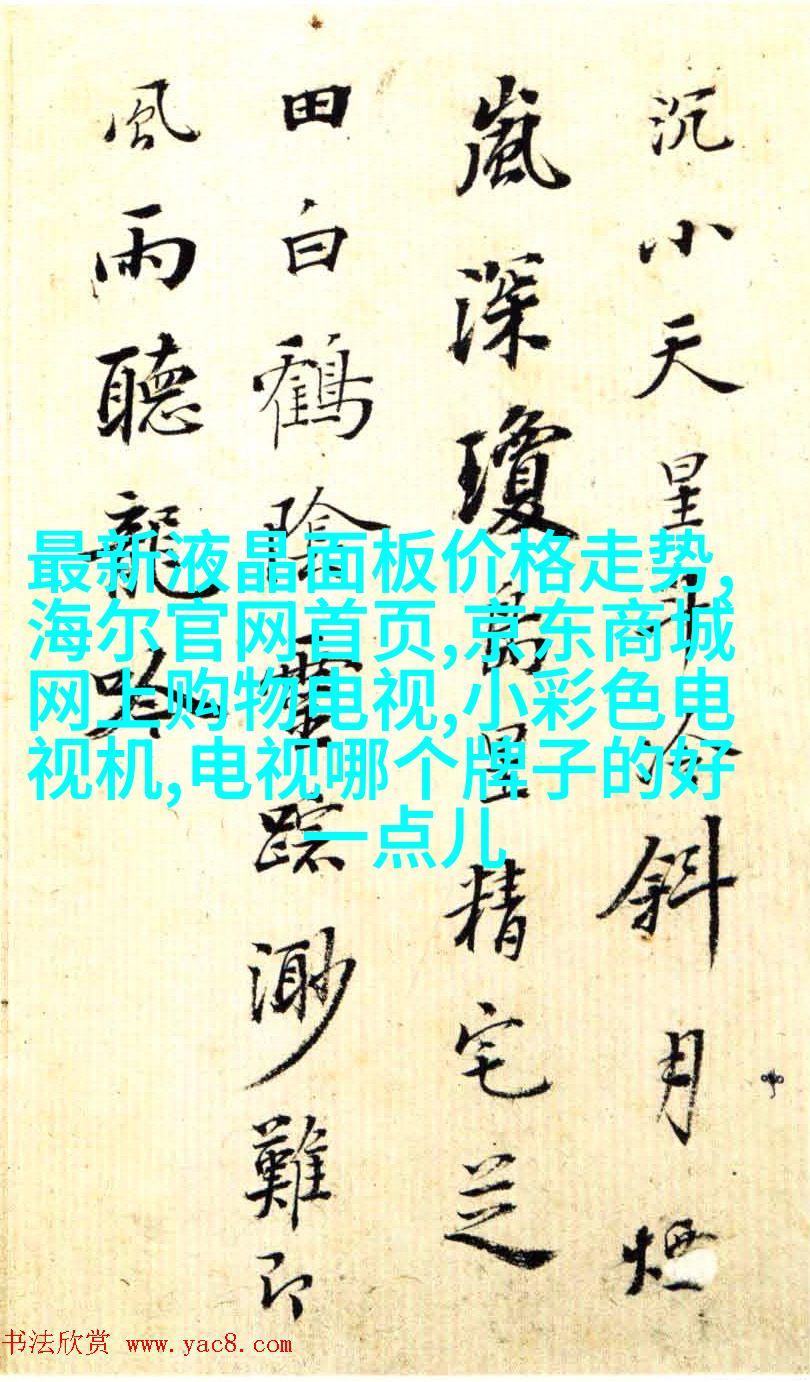 沉小天星斗冷斜月煙
嵐深瓊島星精宅芝
田白鶴陰靈踪渺難即
風雨聽龍吟
最新液晶面板价格走势,
海尔官网首页,京东商城
网上购物电视,小彩色电
视机,电视哪个牌子的好
一点儿
书法欣赏 www.yac8.com